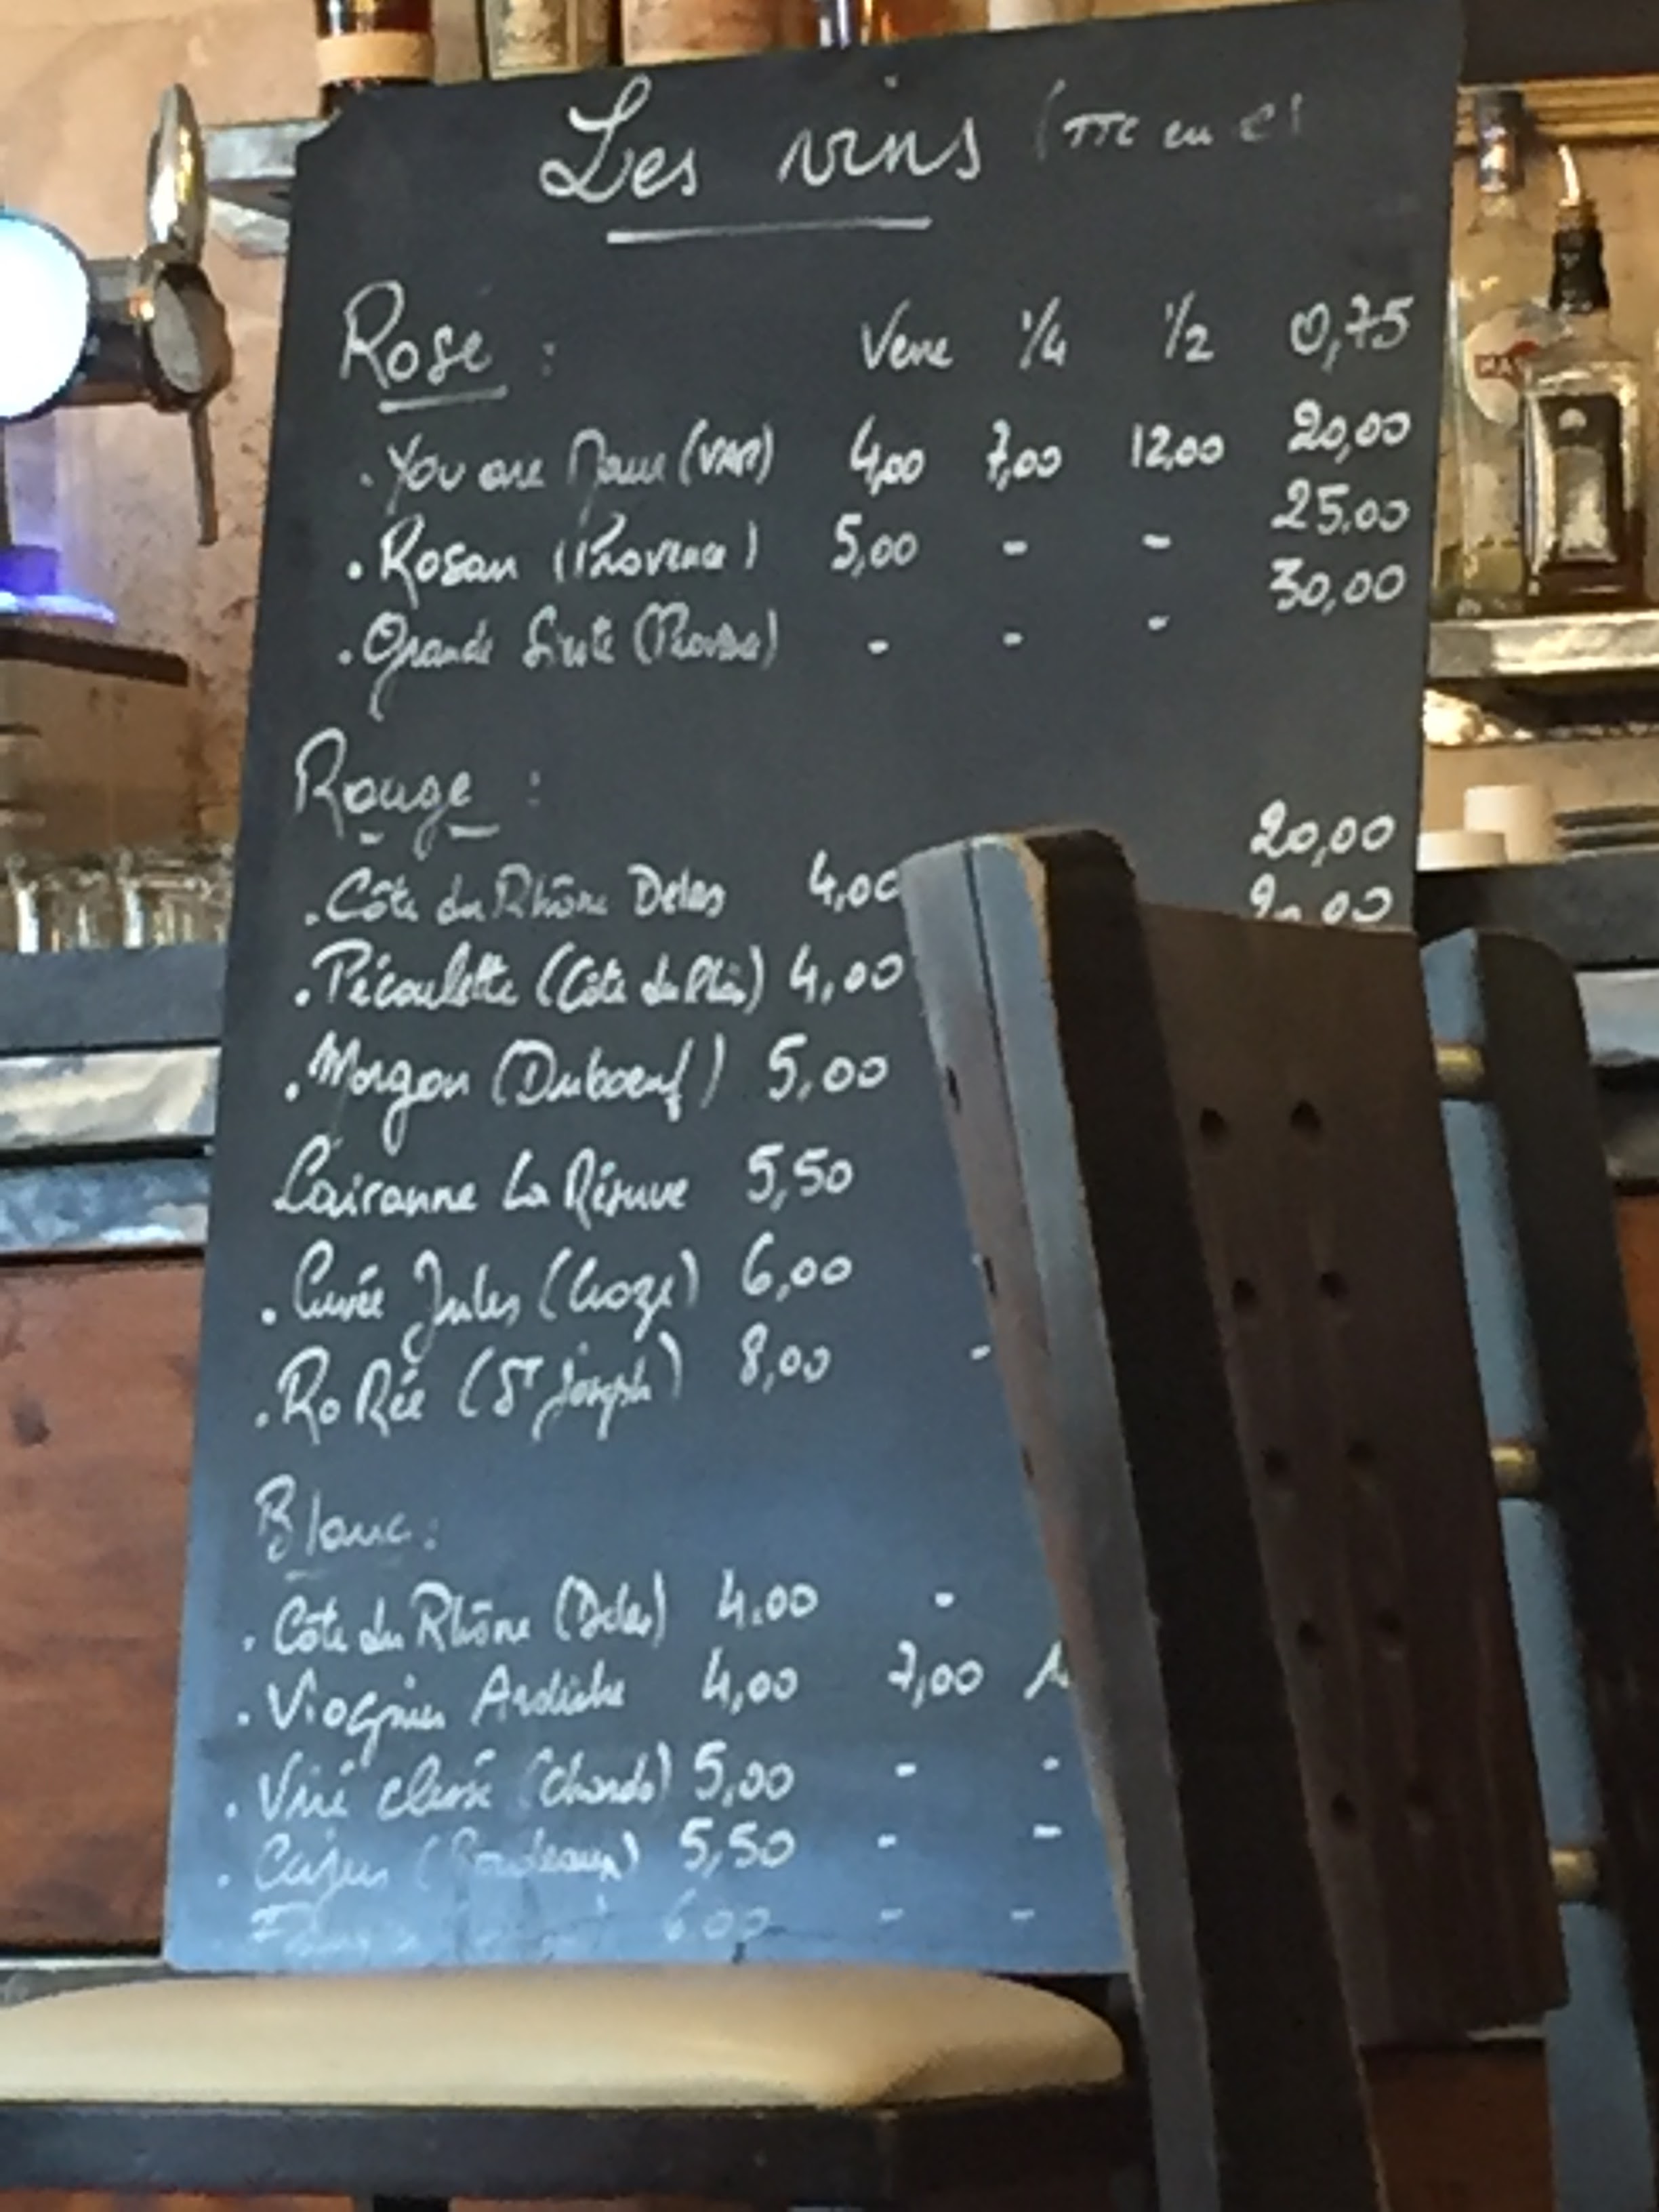 Les vins (TTC en €)
Rosé : Verre 1/4 1/2 0,75
. You are (VAR) 4,00 7,00 12,00 20,00
. Rosan (Provence) 5,00 - - 25,00
. Grande (Provence) - - - 30,00
Rouge :
. Côte du Rhône Delas 4,00 20,00
. Pécoulette (Côte du Rhône) 4,00
. Morgon (Duboeuf) 5,00
Cairanne La Réserve 5,50
. Cuvée Jules (Croze) 6,00
. RoRée (St Joseph) 8,00 -
Blanc :
. Côte du Rhône (Delas) 4,00 -
. Viognier Ardèche 4,00 7,00
. Viré clessé (Chardo) 5,00 - -
. (Bordeaux) 5,50 - -
6,00 - -